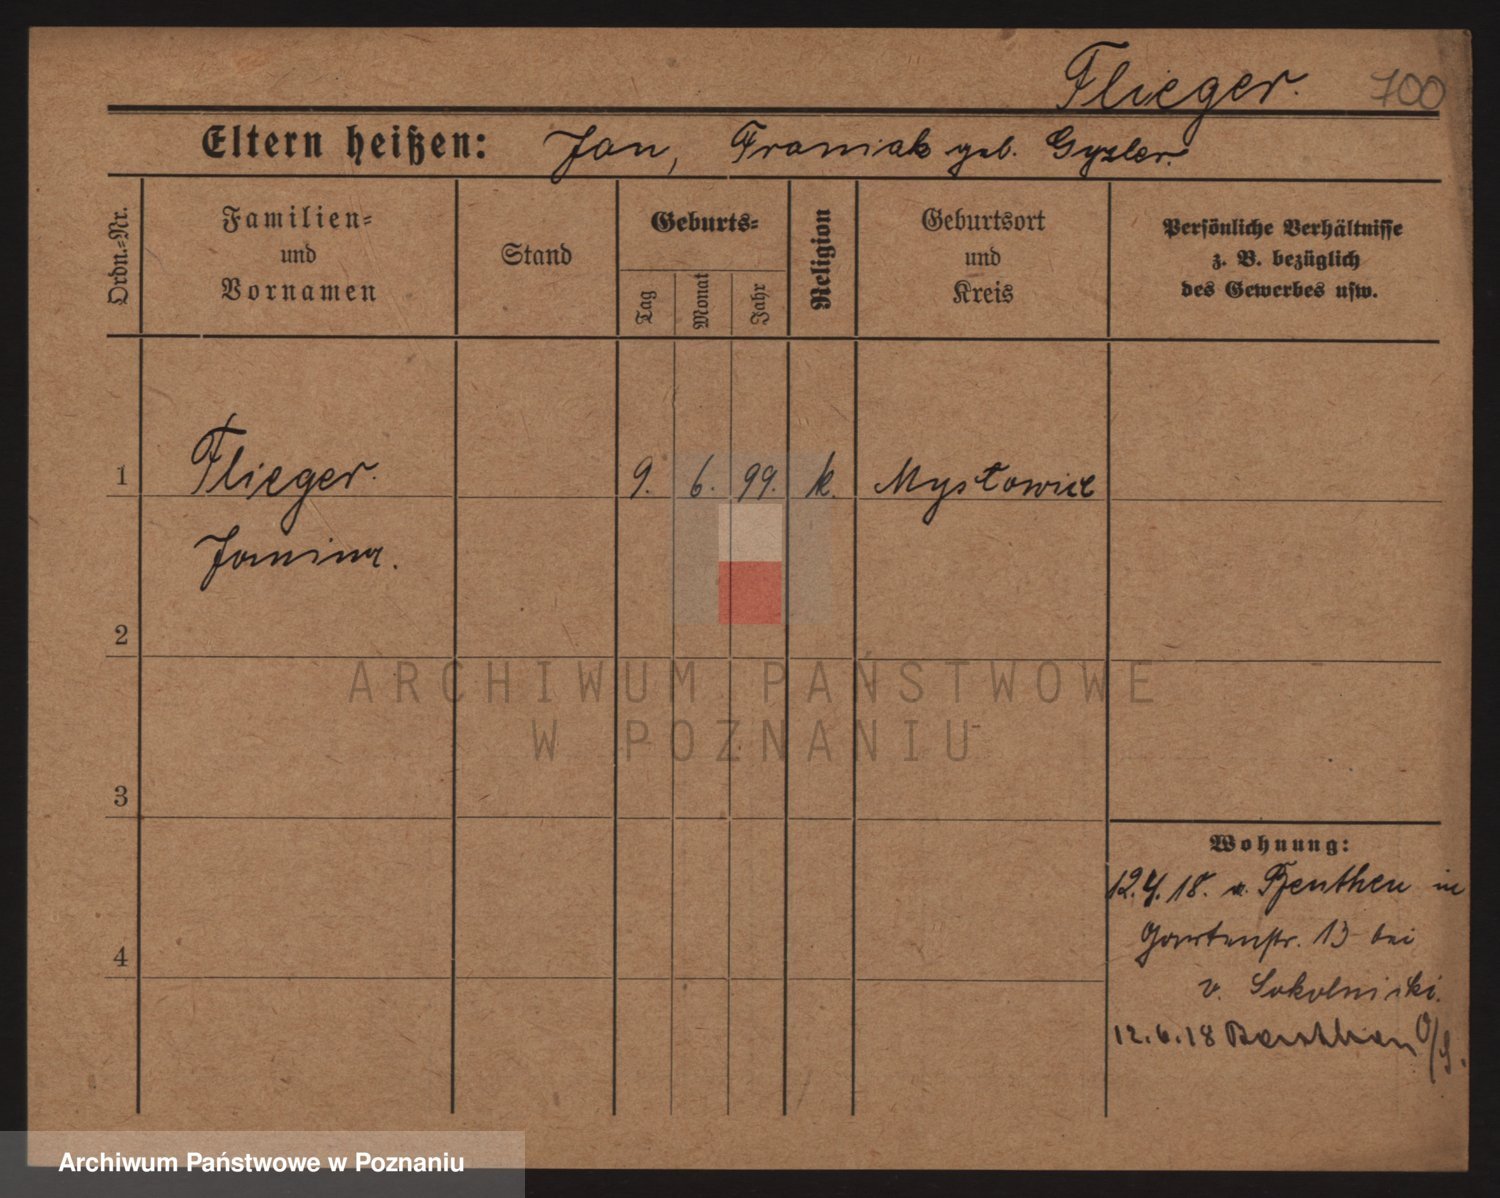 Flieger. 700
Eltern heißen: Jan, Franiak geb. Gyzler.
Ordn.-Nr.
Familien-
und
Vornamen
Stand
Geburts-
Tag
Monat
Jahr
Religion
Geburtsort
und
Kreis
Persönliche Verhältnisse
z. B. bezüglich
des Gewerbes usw.
1 Flieger. 9. 6. 99. k. Mysłowice
Janina.
2
3
4
Wohnung:
12.4.18. v. Beuthen in
Gartenstr. 13 bei
v. Sokolnicki.
12.6.18 Beuthen O/S.
ARCHIWUM PAŃSTWOWE
W POZNANIU
Archiwum Państwowe w Poznaniu